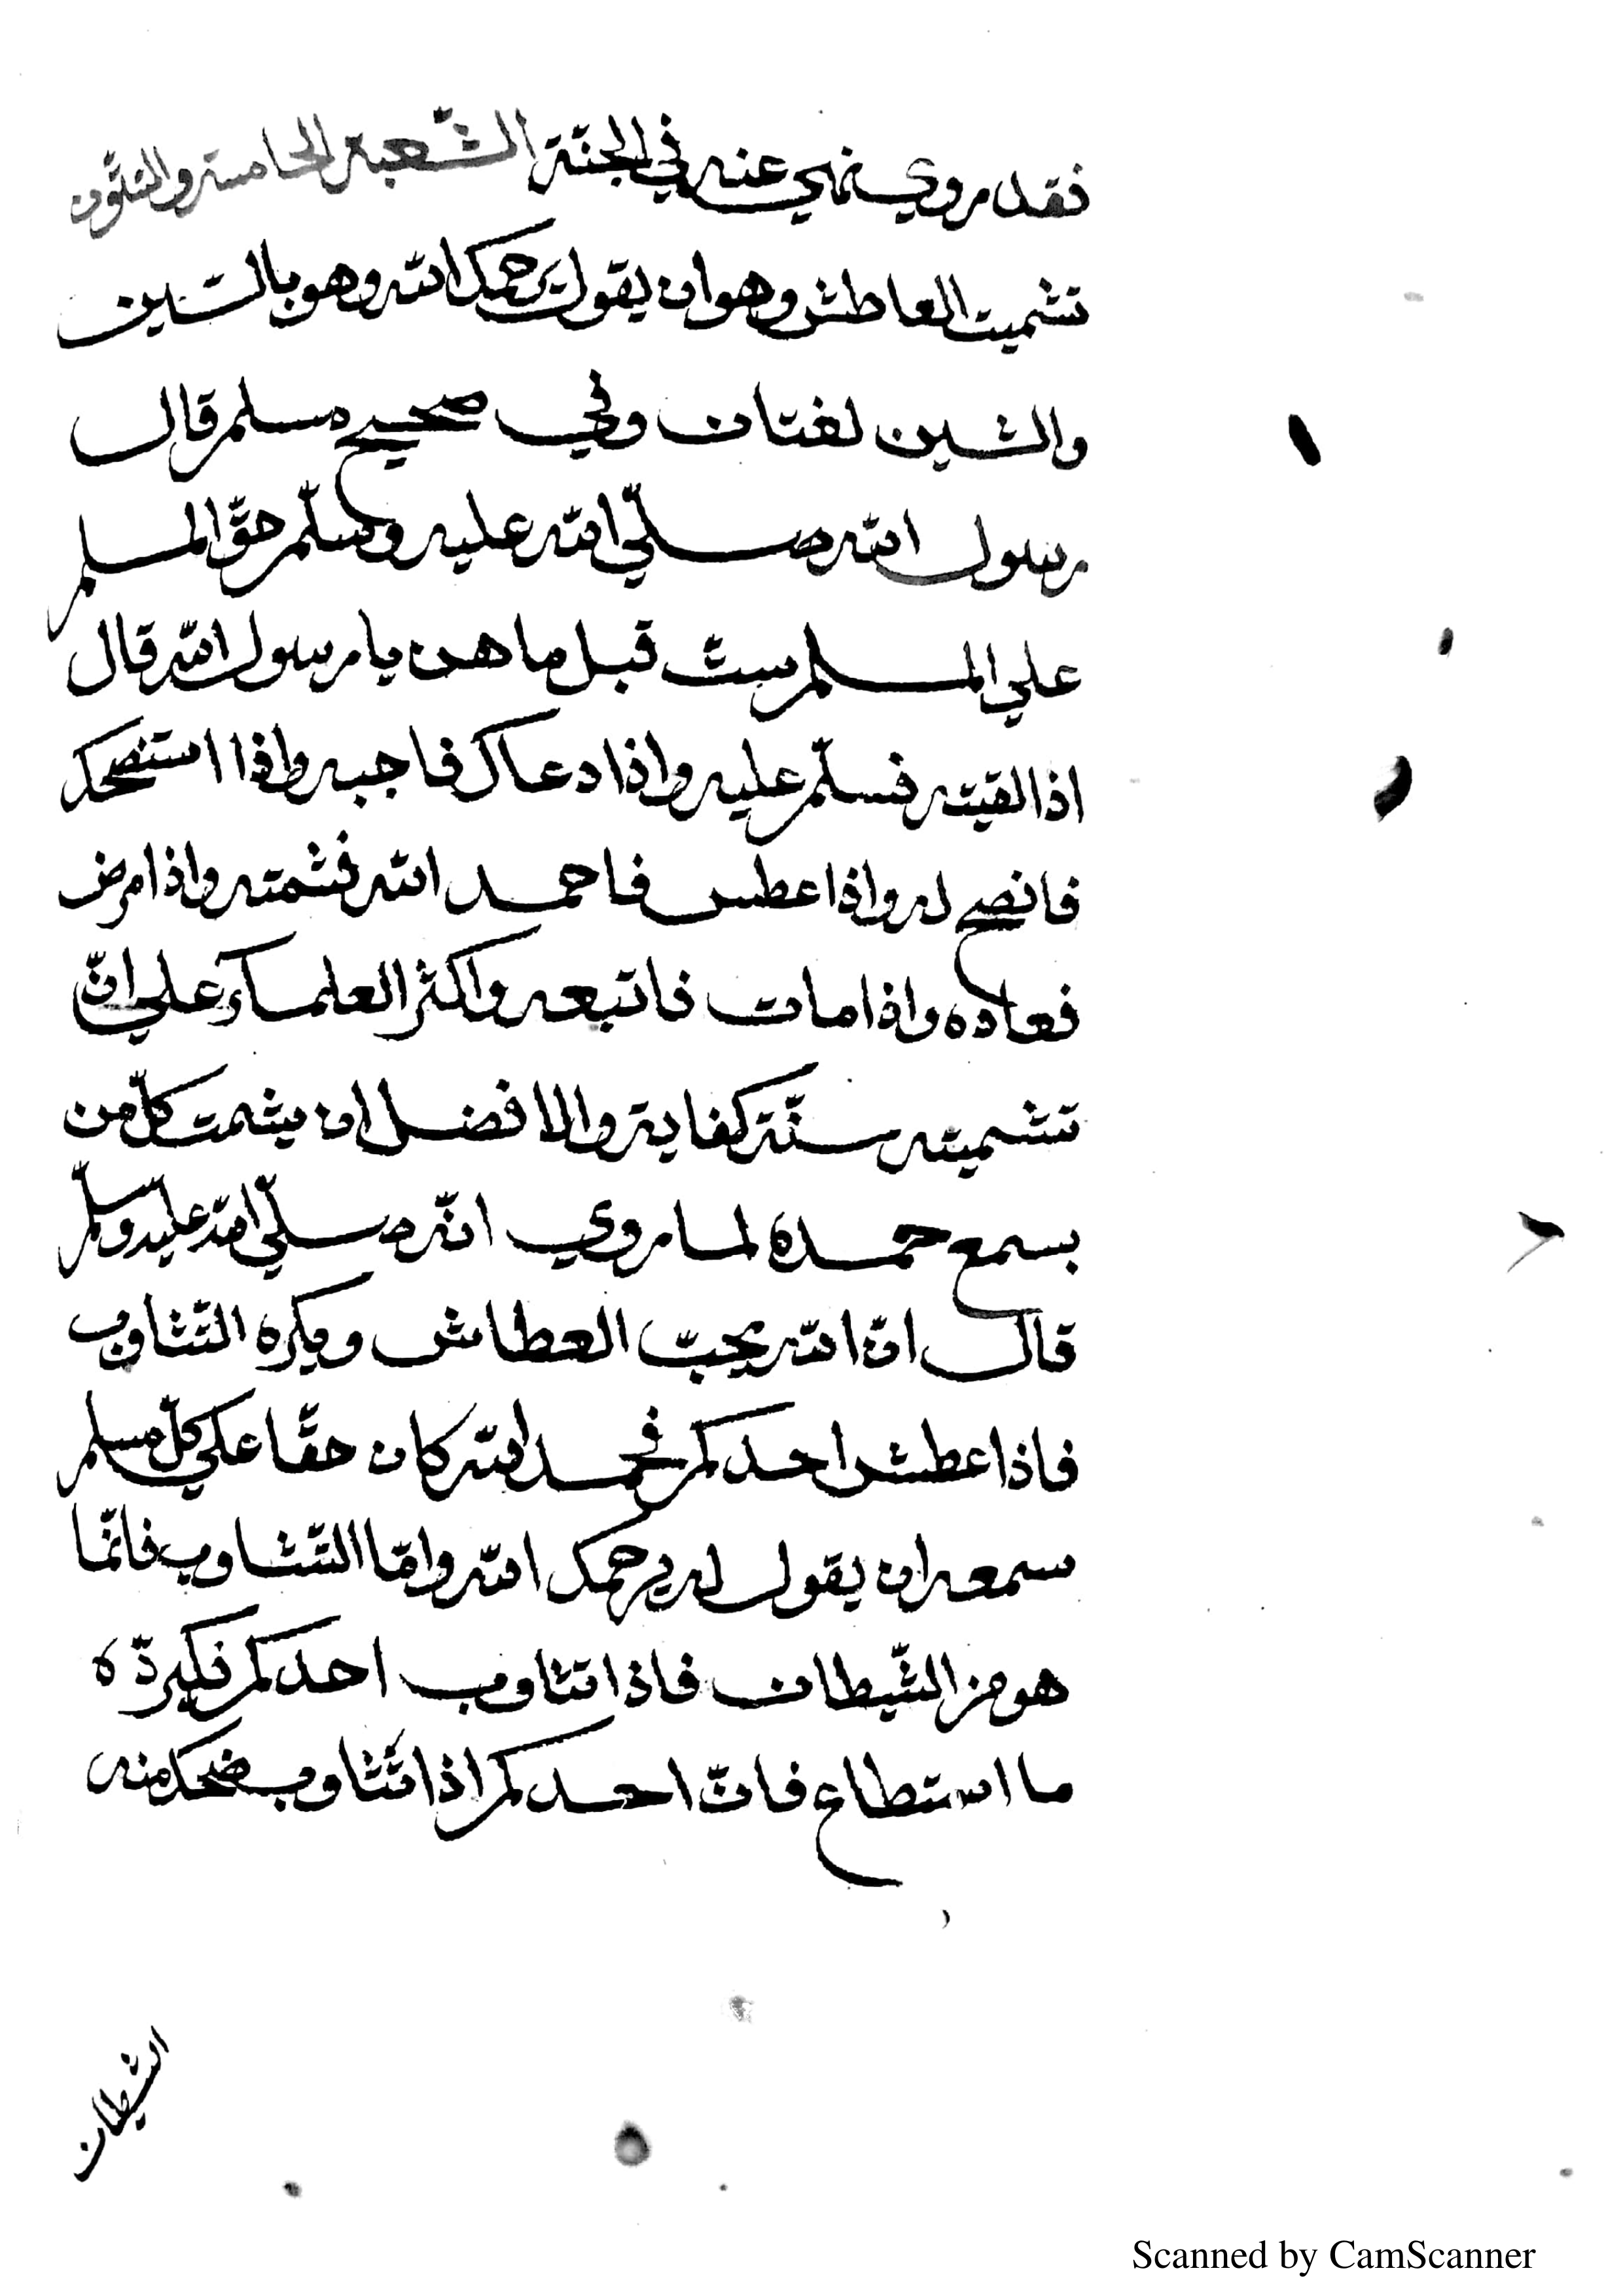 فقد روي نهي عنه في الجنة الشعبة الخامسة والثلثون
تشميت العاطش وهو ان يقول يرحمك الله وهو بالسّين
والشين لغتان وفي صحيح مسلم قال
رسول الله صلّي الله عليه وسلّم حقّ المسلم
علي المسلم ستّ قيل ما هن يا رسول الله قال
اذا لقيته فسلّم عليه واذا دعاك فاجبه واذا استنصحك
فانصح له واذا عطس فاحمد الله فشمته واذا مرض
فعاده واذا مات فاتبعه واكثر العلمآء علي انّ
تشميته سنّة كفاية والافضل ان يشمت كلّ من
يسمع حمده لما روي انّه صلّي الله عليه وسلّم
قال انّ الله يحبّ العطاش ويكره التّثاوب
فاذا عطش احدكم فحمد الله كان حقّا علي كلّ مسلم
سمعه ان يقول له يرحمك الله وامّا التّثاوب فانّما
هو من الشّيطان فاذا تثاوب احدكم فليردّه
ما استطاع فانّ احدكم اذا تثاوب ضحك منه
الشيطان
Scanned by CamScanner